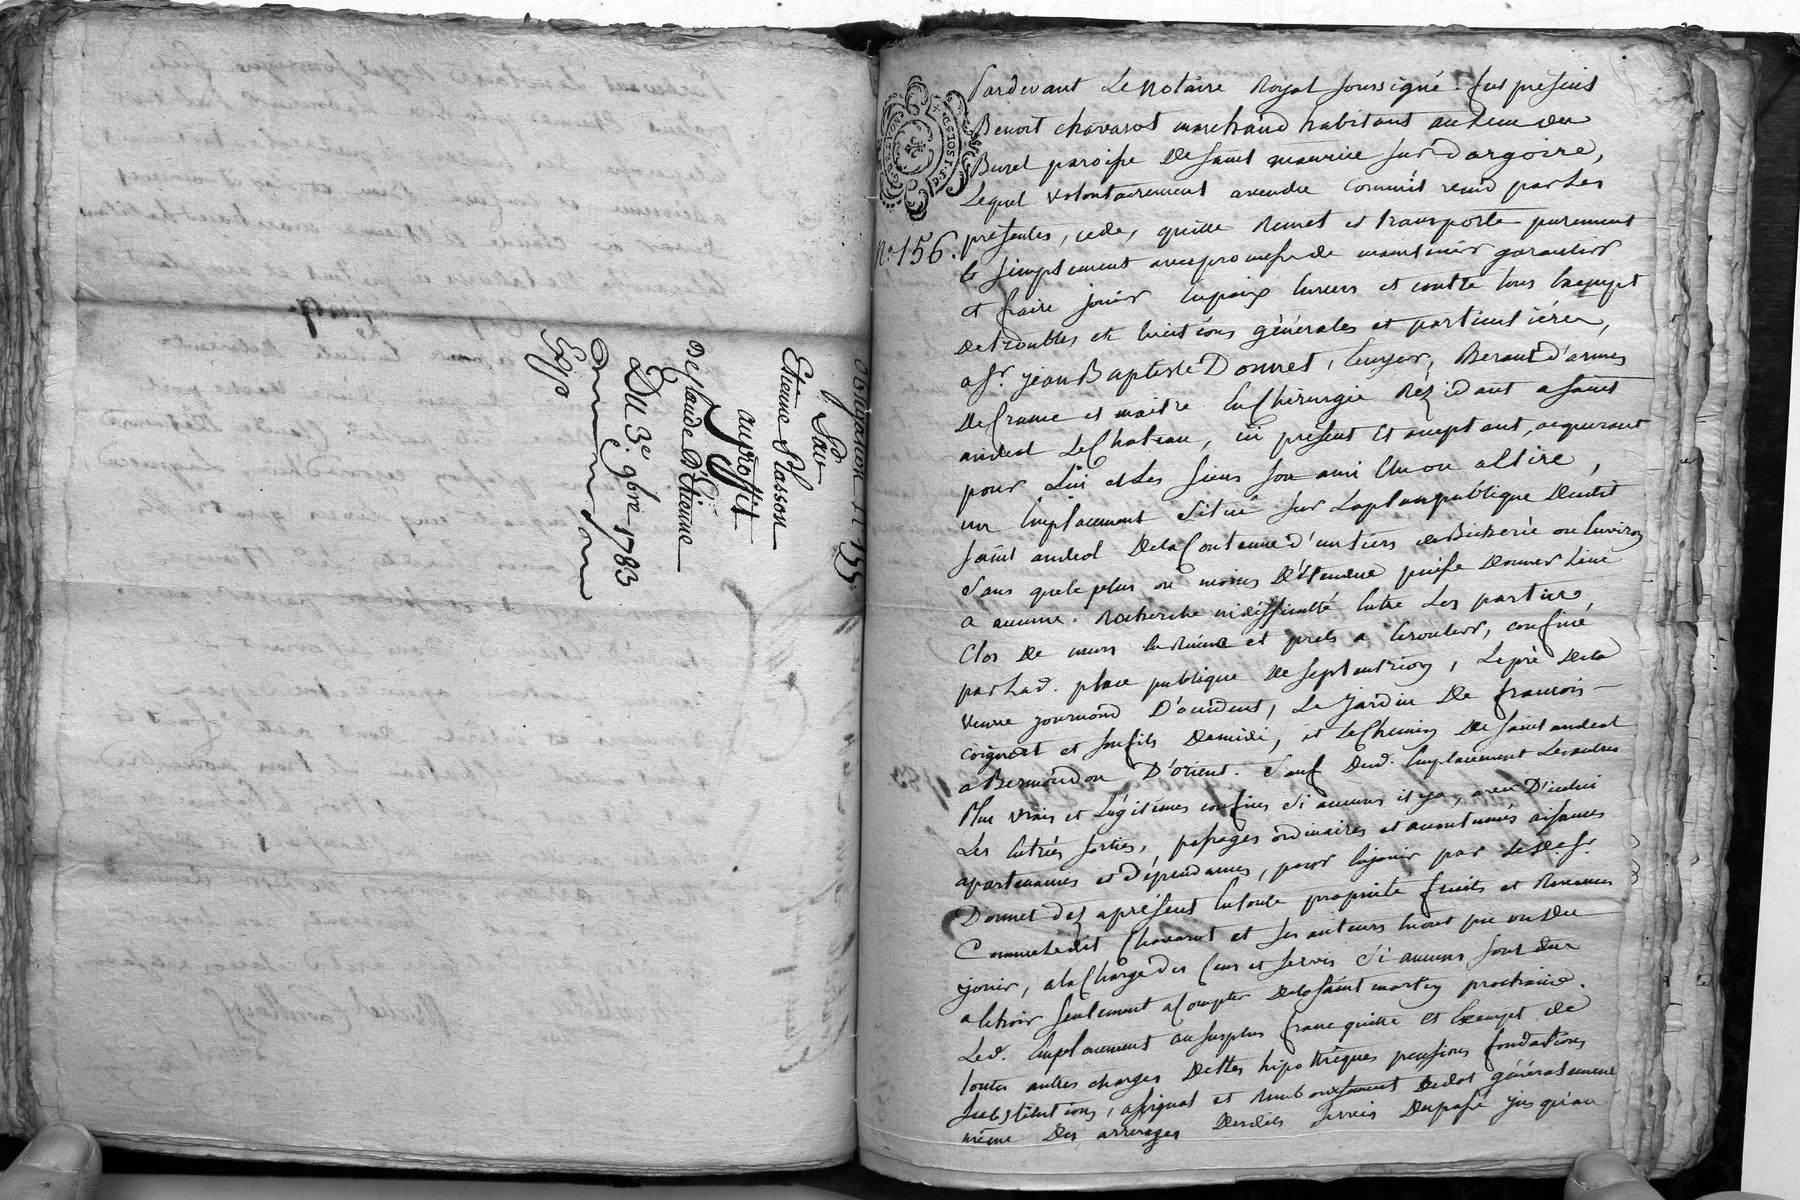 Obligation N. 155
Pard
Etienne Plasson
au proffit
de Claude Detienne
Du 3e. 9bre 1783
Expo
N.o 156.
Pardevant Le Notaire Royal soussigné. fut present
Benoit chavarot marchand habitant au Lieu du
Buret paroisse De saint maurice sur dargoire,
Lequel volontairement a vendu comme il vend par Les
presentes, cede, quitte Remet et transporte purement
et simplement avec promesse de maintenir garantir
et faire jouir en paix Envers et contre tous Exempt
De troubles et Evictions générales et particulieres,
a Sr. jean Baptiste Donnet, Ecuyer, Heraut d'armes
De france et maitre En Chirurgie Rezidant a saint
andeol Le Chateau, ici present Et acceptant, acquerant
pour Lui et Les siens son ami Elu ou a Elire,
un Emplacement Situé sur La place publique Dudit
saint andeol De la Contenue d'un tiers de Bicherée ou Environ
Sans que le plus ou moins D'Etendue puisse Donner Lieu
a aucune Recherche ni difficulté Entre Les parties,
Clos De murs En Ruine et prets a Ecrouler, confiné
par Lad. place publique De septentrion, Le pré De la
veuve journoud D'occident, Le jardin De francois
coignet et son fils De midi, et Le Chemin De saint andeol
a Bermondon D'orient. Sauf Dud. Emplacement Les autres
Plus vrais et Légitimes confins Si aucuns il y a, avec D'icelui
Les Entrées sorties, passages ordinaires et accoutumés aisances
apartenances et dépendances, pour En jouir par Led. Sr.
Donnet Dez a présent En toute proprieté fruits et Revenus
Comme Ledit Chavarot et ses auteurs En ont pu ou Du
jouir, a la Charge Des Cens et servis Si aucuns sont Dus
a Echoir seulement a Compter De la saint martin prochaine.
Led. Emplacement au surplus franc quitte Et Exempt de
toutes autres charges Dettes hipothèques pensions fondations
substitutions, assignat et Remboursement De dot généralement
même Des arrerages Desdits servis Du passé jusqu'au